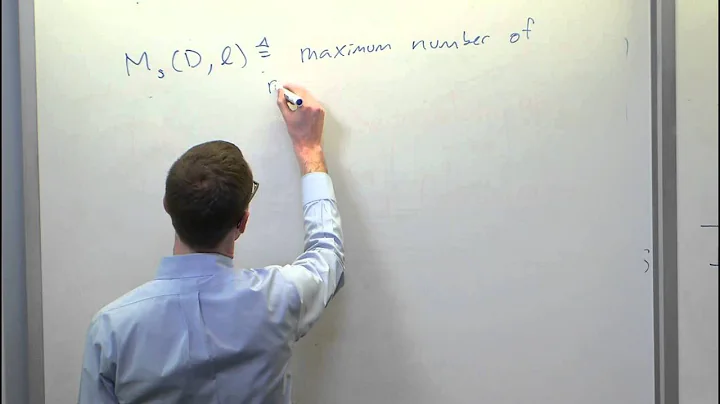 Mₛ(D, ℓ) ≜ maximum number of
r